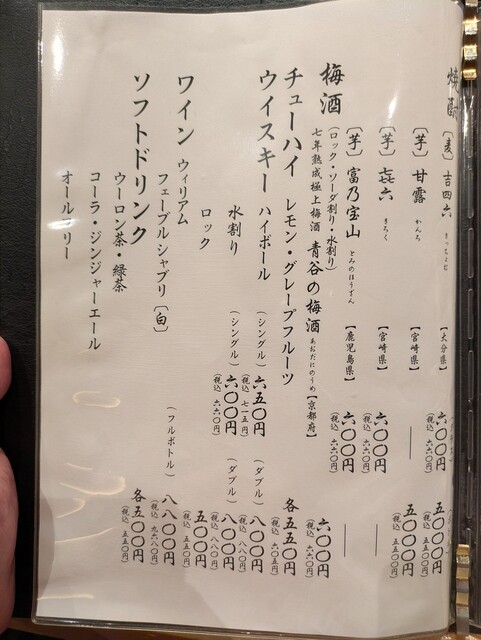 焼酎
〔麦〕 吉四六 きっちょむ 【大分県】 六〇〇円 (税込 六六〇円) 五〇〇〇円 (税込 五五〇〇円)
〔芋〕 甘露 かんろ 【宮崎県】 ― 五〇〇〇円 (税込 五五〇〇円)
〔芋〕 㐂六 きろく 【宮崎県】 六〇〇円 (税込 六六〇円) ―
〔芋〕 富乃宝山 とみのほうざん 【鹿児島県】 六〇〇円 (税込 六六〇円) ―
梅酒
(ロック・ソーダ割り・水割り)
七年熟成極上梅酒 青谷の梅酒 あおだにのうめ 【京都府】 六〇〇円 (税込 六六〇円)
チューハイ レモン・グレープフルーツ 各五五〇円 (税込 六〇五円)
ウイスキー ハイボール (シングル) 六五〇円 (税込 七一五円) (ダブル) 八〇〇円 (税込 八八〇円)
水割り (シングル) 六〇〇円 (税込 六六〇円) (ダブル) 八〇〇円 (税込 八八〇円)
ロック 五〇〇円 (税込 五五〇円)
ワイン ウィリアム
フェーブル シャブリ 〔白〕 (フルボトル) 八八〇〇円 (税込 九六八〇円)
ソフトドリンク 各五〇〇円 (税込 五五〇円)
ウーロン茶・緑茶
コーラ・ジンジャーエール
オールフリー